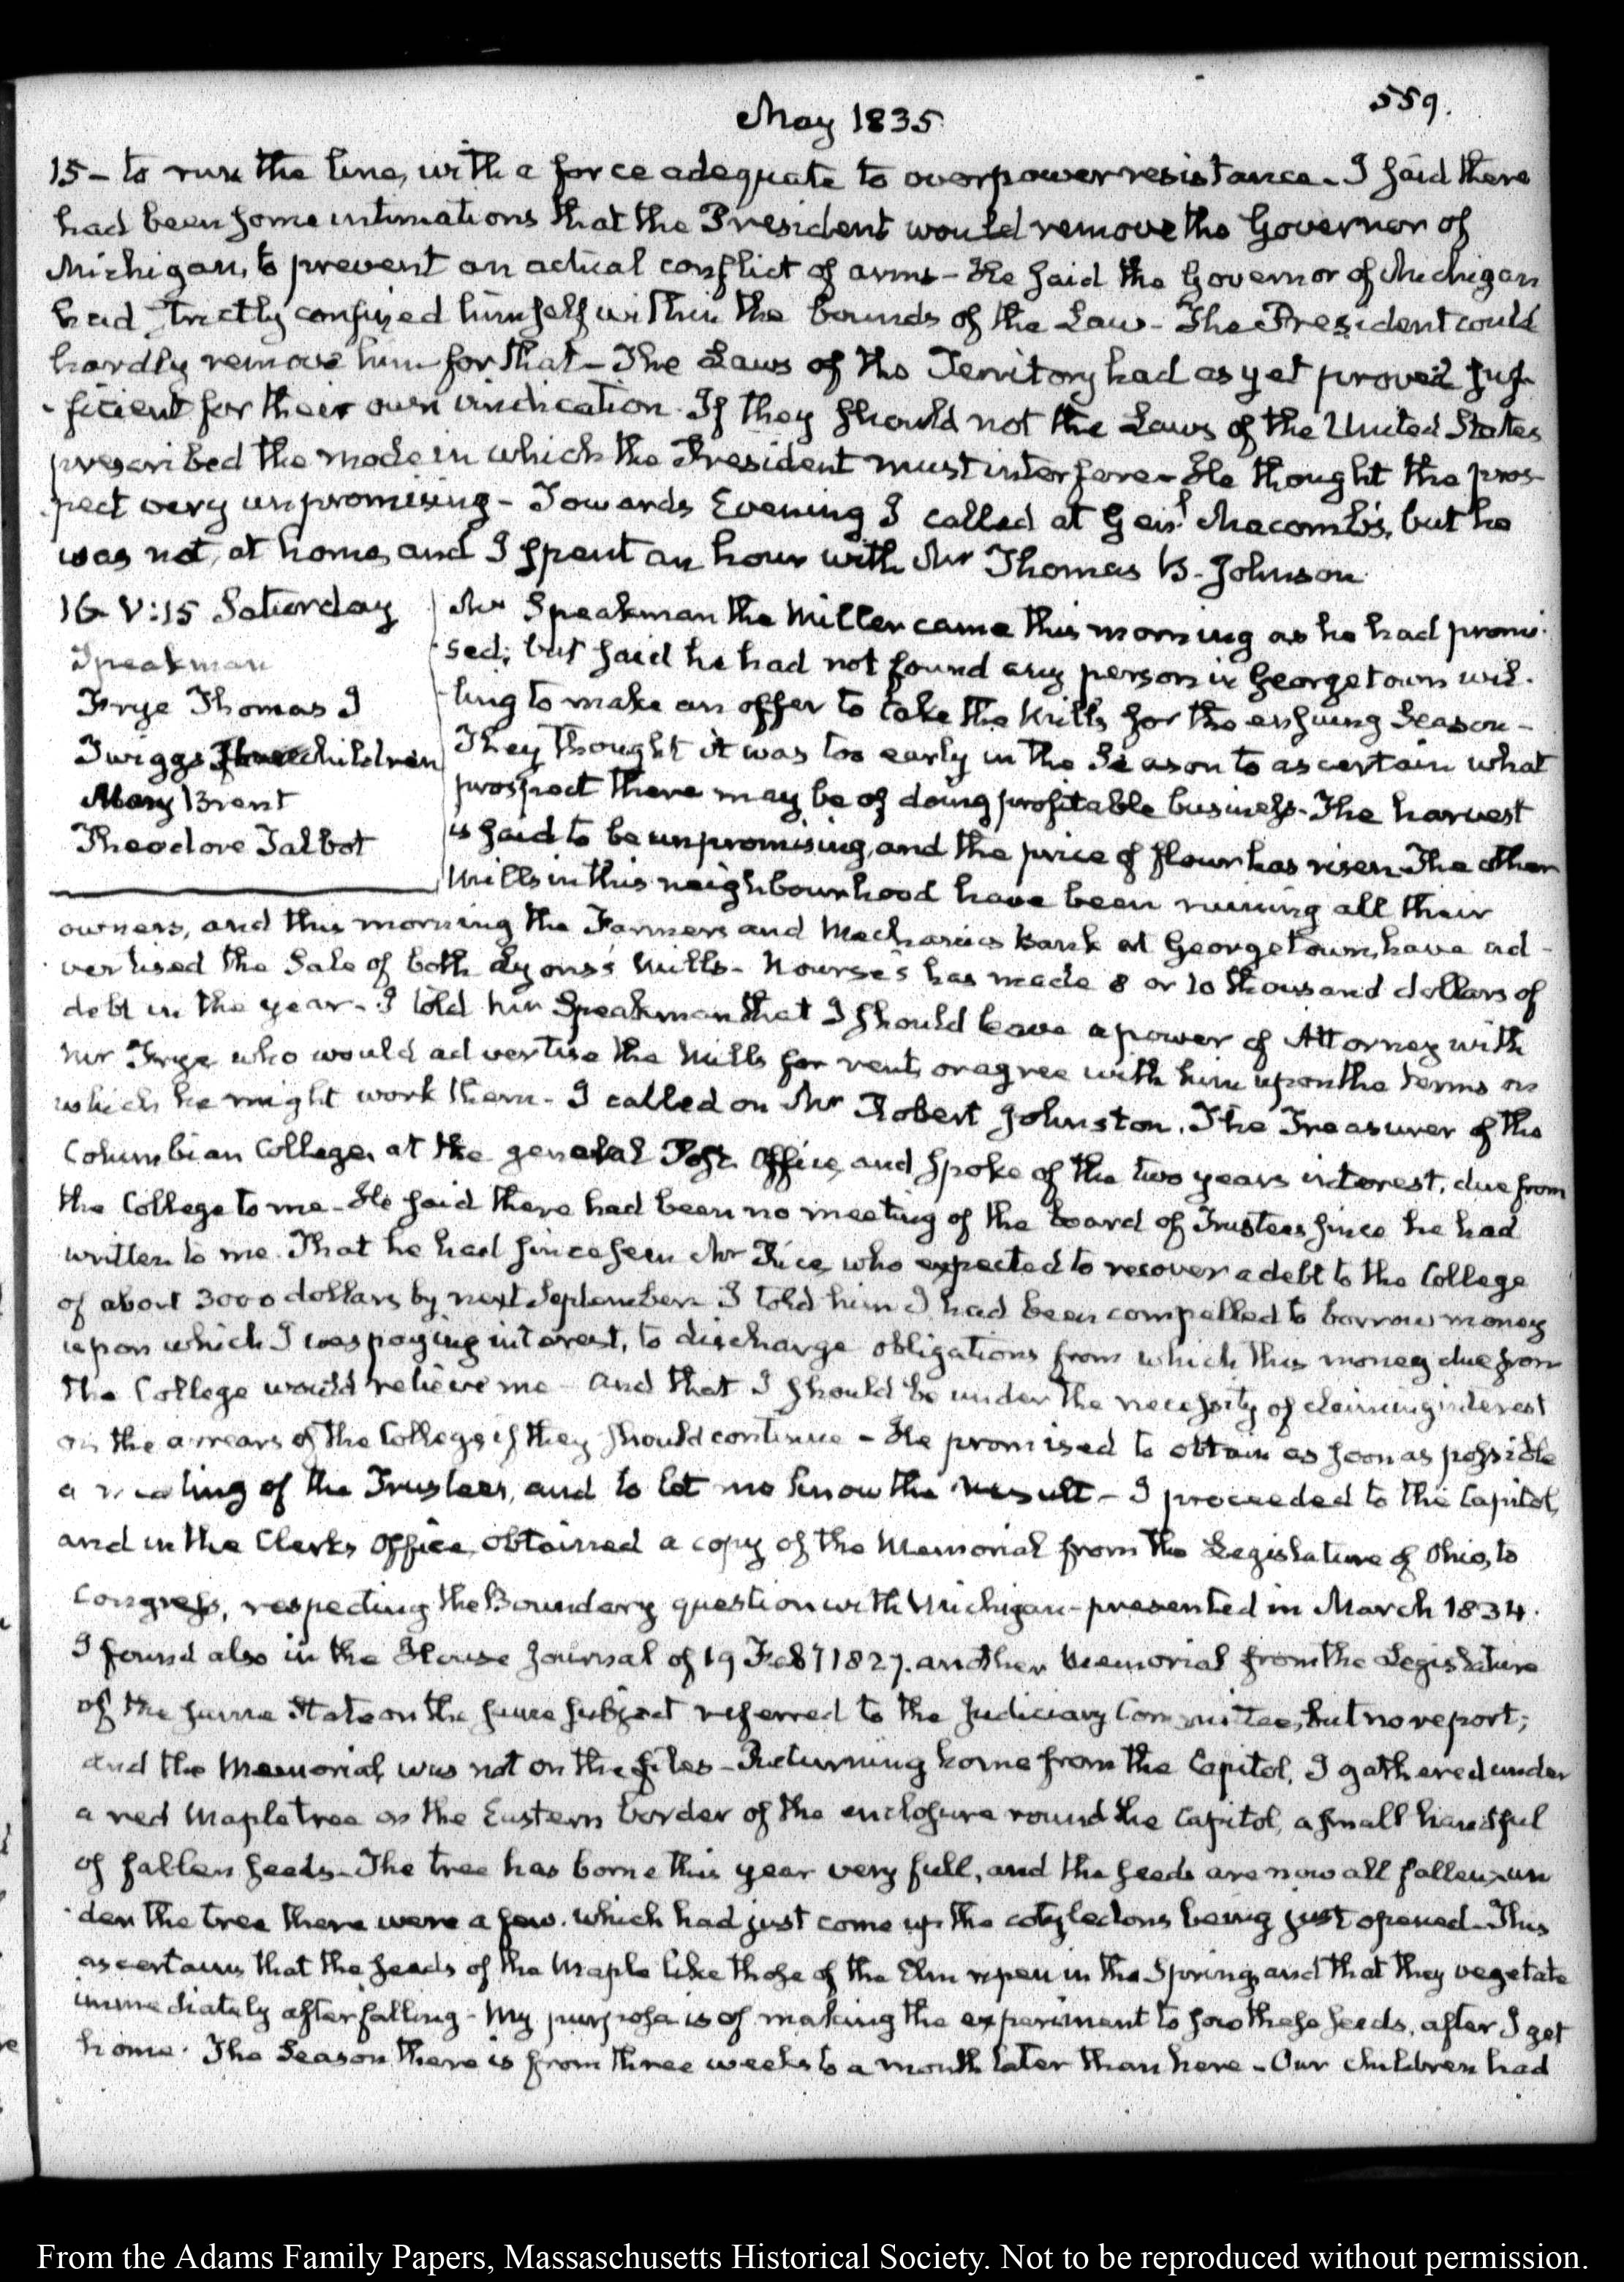 559.
May 1835
15 - to run the line, with a force adequate to overpower resistance - I said there
had been some intimations that the President would remove the Governor of
Michigan, to prevent an actual conflict of arms - He said the Governor of Michigan
had strictly confined himself within the bounds of the Law - The President could
hardly remove him for that - The Laws of the Territory had as yet proved suf-
-ficient for their own vindication. If they should not the Laws of the United States
prescribed the mode in which the President must interfere - He thought the pros-
-pect very unpromising - Towards Evening I called at Genl. Macomb's, but he
was not at home, and I spent an hour with Mr Thomas B. Johnson
16. V:15 Saturday
Speakman
Frye Thomas I
Twiggs Three children
Mary Brent
Theodore Talbot
Mr Speakman the Miller came this morning as he had promi-
-sed; but said he had not found any person in Georgetown wil-
-ling to make an offer to take the Mills for the ensuing Season -
They thought it was too early in the Season to ascertain what
prospect there may be of doing profitable business - The harvest
is said to be unpromising, and the price of flour has risen. The other
Mills in this neighbourhood have been ruining all their
owners, and this morning the Farmers and Mechanics Bank at Georgetown, have ad-
-vertised the Sale of both Lyons's Mills - Nourse's has made 8 or 10 thousand dollars of
debt in the year - I told Mr Speakman that I should leave a power of Attorney with
Mr Frye who would advertise the Mills for rent, or agree with him upon the terms on
which he might work them - I called on Mr Robert Johnston, The Treasurer of the
Columbian College, at the general Post Office, and spoke of the two years interest, due from
the College to me - He said there had been no meeting of the board of Trustees since he had
written to me. That he had since seen Mr Rice, who expected to recover a debt to the College
of about 3000 dollars by next September. I told him I had been compelled to borrow money
upon which I was paying interest, to discharge obligations from which this money due from
the College would relieve me - and that I should be under the necessity of claiming interest
on the arrears of the College if they should continue - He promised to obtain as soon as possible
a meeting of the Trustees, and to let me know the result - I proceeded to the Capitol,
and in the Clerk's Office, obtained a copy of the Memorial from the Legislature of Ohio, to
Congress, respecting the Boundary question with Michigan - presented in March 1834.
I found also in the House Journal of 19 Feby 1827. another Memorial from the Legislature
of the same State on the same subject referred to the Judiciary Committee, but no report;
and the Memorial was not on the files - Returning home from the Capitol, I gathered under
a red Maple tree on the Eastern border of the enclosure round the Capitol, a small handful
of fallen seeds - The tree has borne this year very full, and the seeds are now all fallen, un-
-der the tree there were a few. which had just come up the cotyledons being just opened - This
ascertains that the seeds of the Maple like those of the Elm ripen in the Spring, and that they vegetate
immediately after falling - My purpose is of making the experiment to sow these seeds, after I get
home. The Season there is from three weeks to a month later than here - Our children had
From the Adams Family Papers, Massachusetts Historical Society. Not to be reproduced without permission.